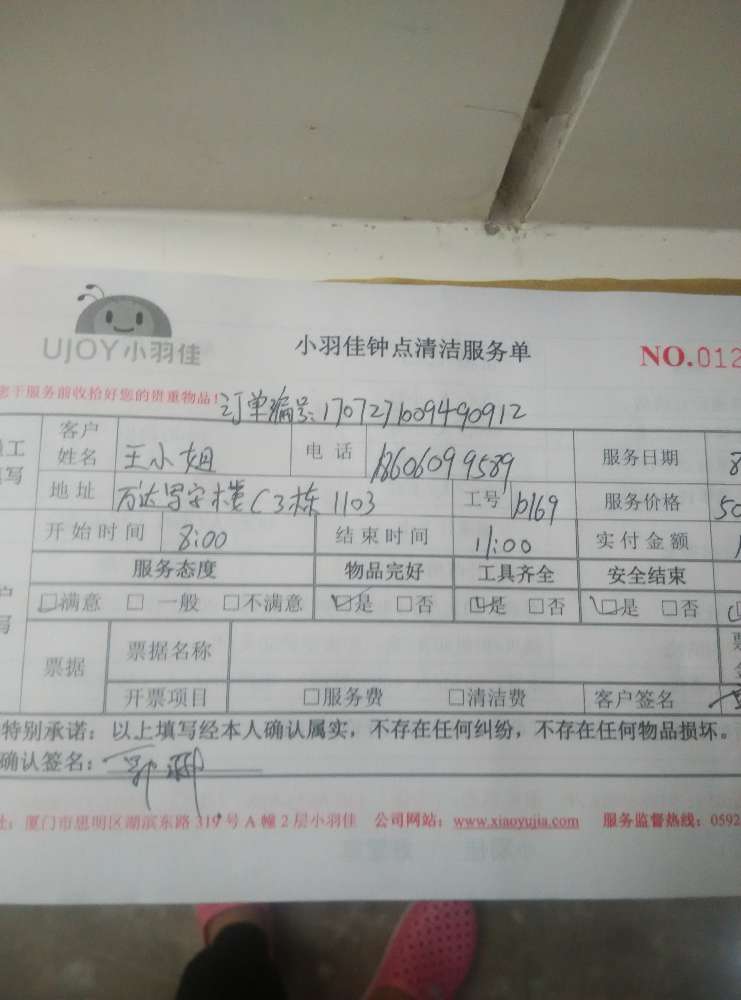 UJOY小羽佳
小羽佳钟点清洁服务单
NO.012
于服务前收拾好您的贵重物品!订单编号:1707271009490912
客户姓名 王小姐 电话 18606099589 服务日期 8
地址 万达写字楼C3栋1103 工号 1b169 服务价格 50
开始时间 8:00 结束时间 11:00 实付金额
服务态度 物品完好 工具齐全 安全结束
□满意 □一般 □不满意 □是 □否 □是 □否 □是 □否
票据 票据名称
开票项目 □服务费 □清洁费 客户签名
特别承诺:以上填写经本人确认属实,不存在任何纠纷,不存在任何物品损坏。
确认签名:
厦门市思明区湖滨东路319号A幢2层小羽佳 公司网站:www.xiaoyujia.com 服务监督热线:0592